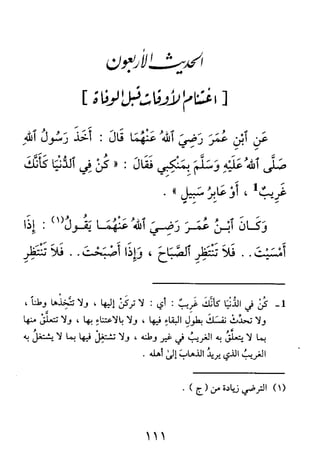 الحديث الأربعون
[ اغتنام الأوقات قبل الوفاة ]
عَنِ ٱبْنِ عُمَرَ رَضِيَ ٱللهُ عَنْهُمَا قَالَ : أَخَذَ رَسُولُ ٱللهِ
صَلَّى ٱللهُ عَلَيْهِ وَسَلَّمَ بِمَنْكِبِي فَقَالَ : « كُنْ فِي ٱلدُّنْيَا كَأَنَّكَ
غَرِيبٌ1 ، أَوْ عَابِرُ سَبِيلٍ » .
وَكَانَ ٱبْنُ عُمَرَ رَضِيَ ٱللهُ عَنْهُمَا يَقُولُ(١) : إِذَا
أَمْسَيْتَ .. فَلاَ تَنْتَظِرِ ٱلصَّبَاحَ ، وَإِذَا أَصْبَحْتَ .. فَلاَ تَنْتَظِرِ
1- كُنْ في الدُّنْيَا كَأَنَّكَ غَرِيبٌ : أي : لا تركَنْ إليها ، ولا تتَّخِذْها وطناً ،
ولا تحدِّثْ نفسَكَ بطولِ البقاءِ فيها ، ولا بالاعتناءِ بها ، ولا تتعلَّقْ منها
بما لا يتعلَّقُ به الغريبُ في غيرِ وطنه ، ولا تشتغِلْ فيها بما لا يشتغلُ به
الغريبُ الذي يريدُ الذهابَ إلىٰ أهله .
(١) الترضي زيادة من ( ج ) .
١١١